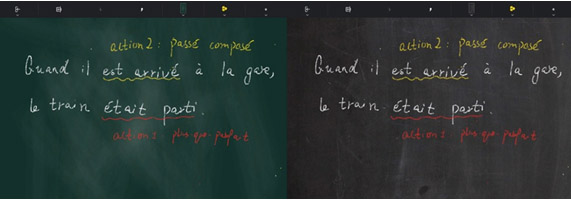 action 2 : passé composé
Quand il est arrivé à la gare,
le train était parti.
action 1 : plus-que-parfait
action 2 : passé composé
Quand il est arrivé à la gare,
le train était parti.
action 1 : plus-que-parfait